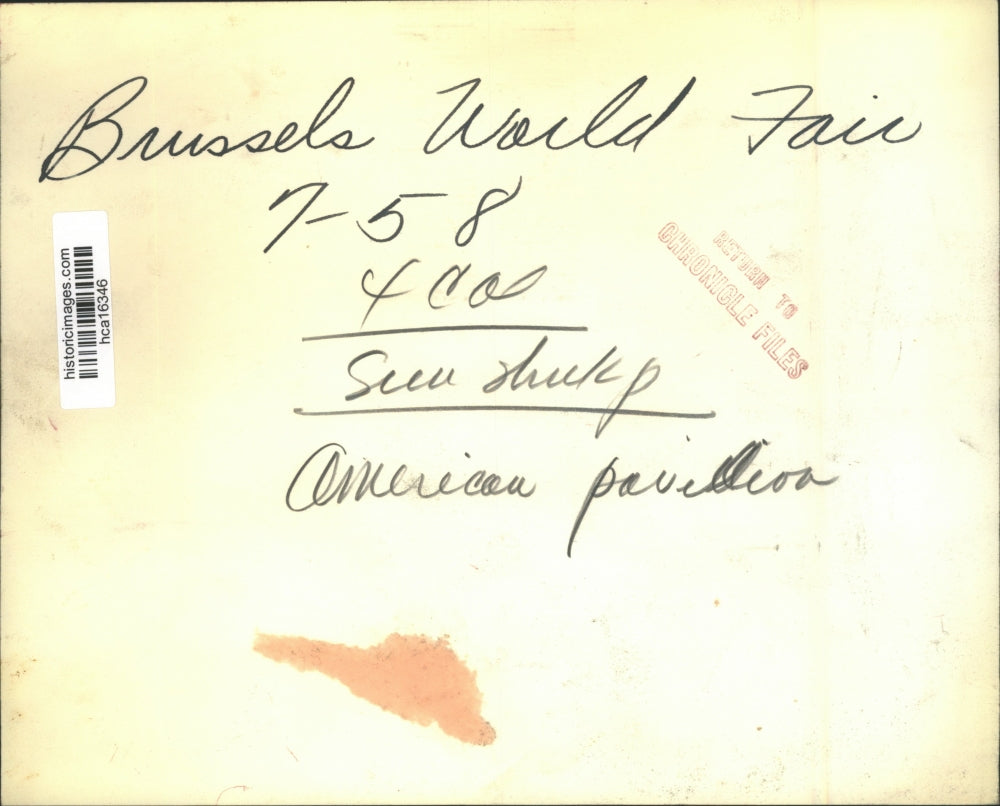 Brussels World Fair
7-58
4 cos
Sun
American pavillion
RETURN TO
CHRONICLE FILES
historicimages.com
hca16346